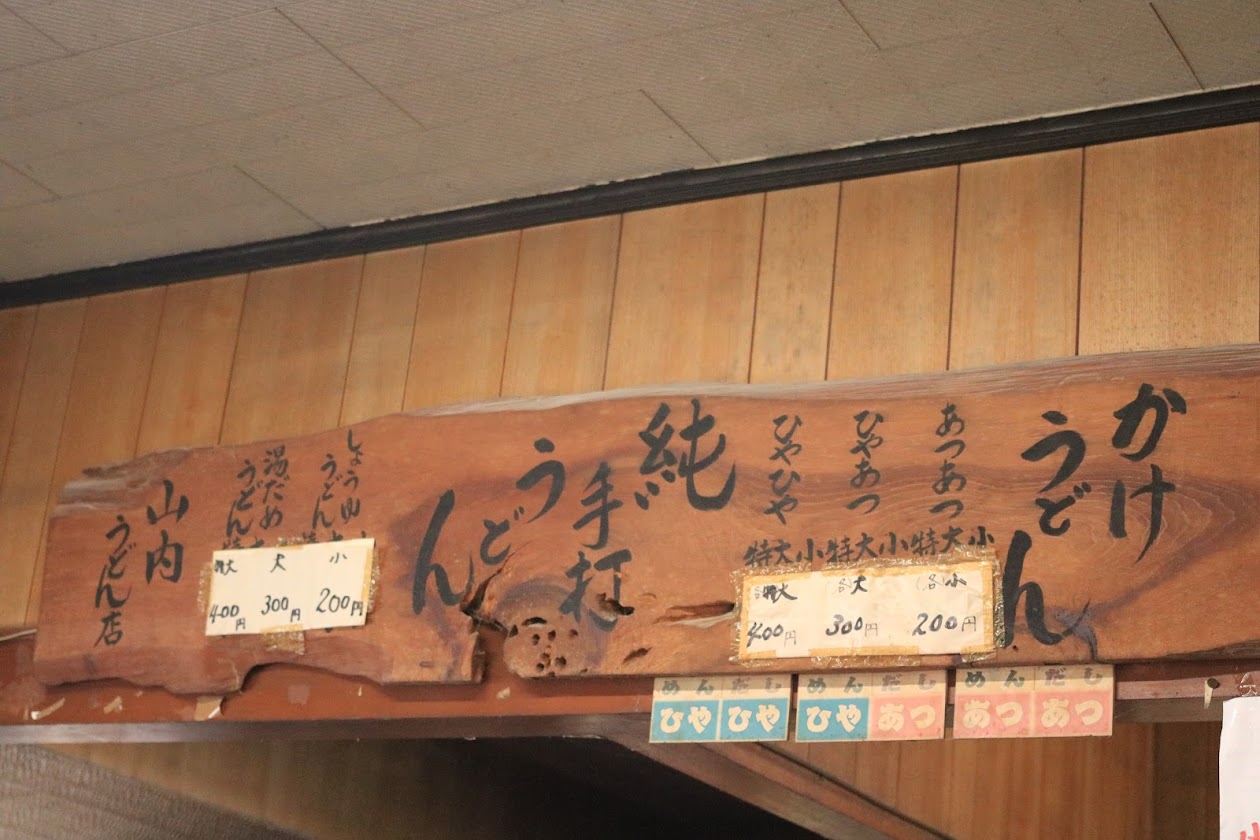 かけ
うどん
あつあつ
小
大
特
ひやあつ
小
大
特
ひやひや
小
大
特
(各)小
200円
各大
300円
特大
400円
純
手打
うどん
しょうゆ
うどん
湯だめ
うどん
小
200円
大
300円
特大
400円
山内
うどん店
めん だし
ひや ひや
めん だし
ひや あつ
めん だし
あつ あつ